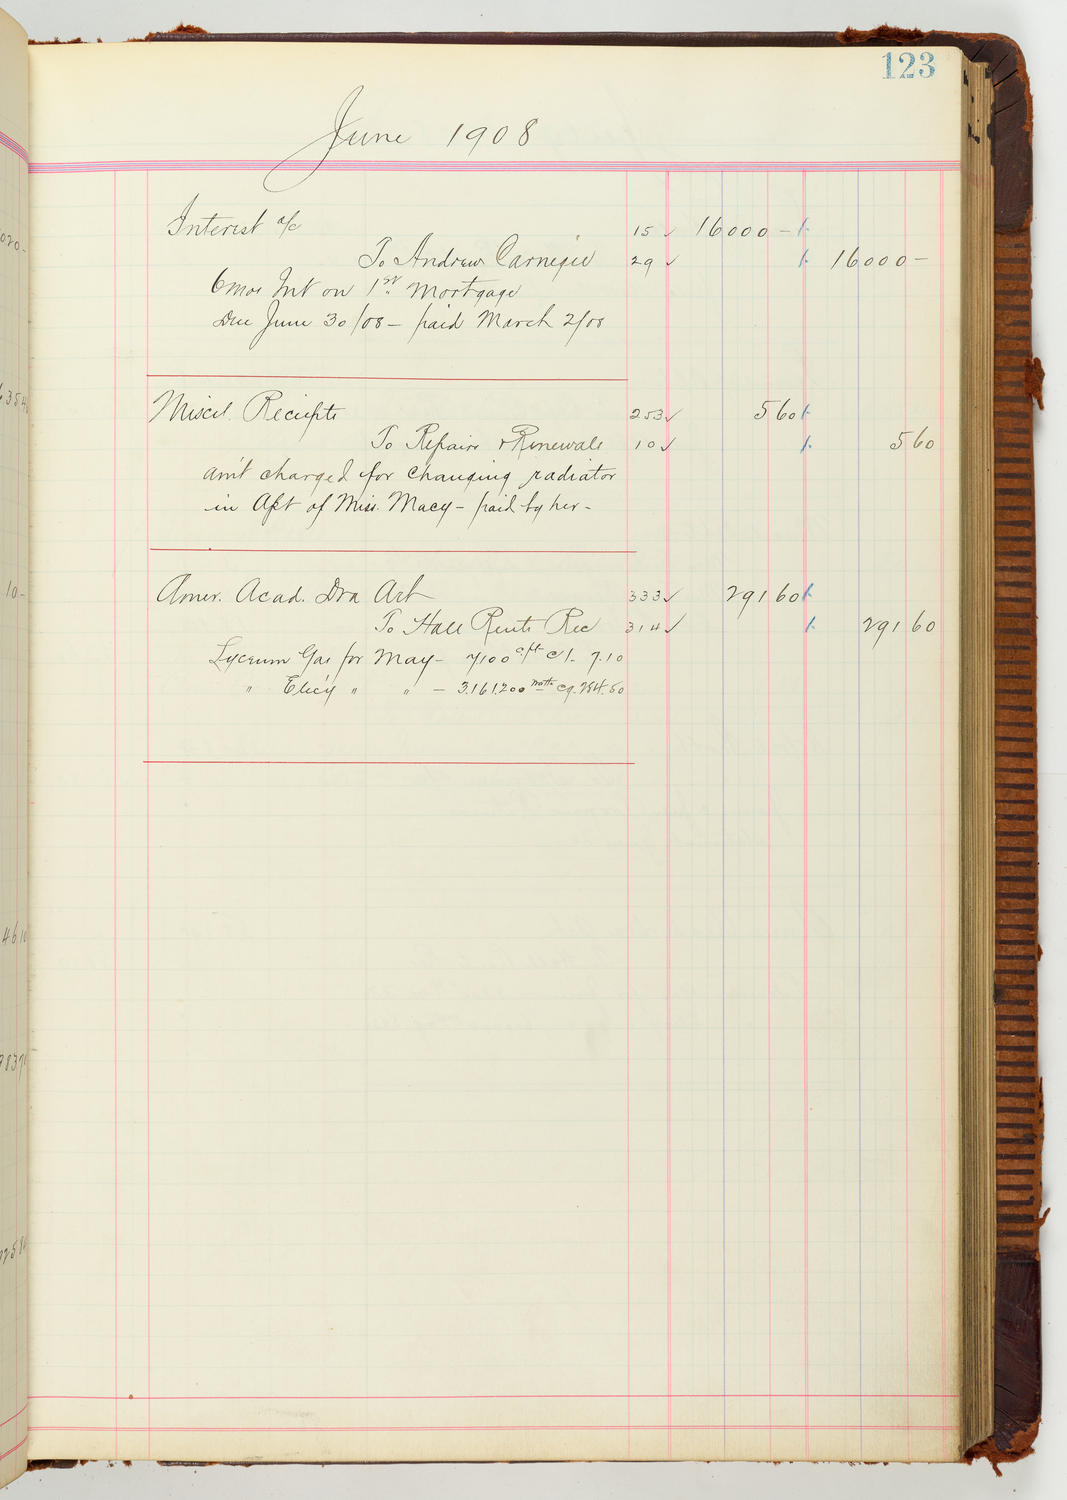 123
June 1908
Interest a/c 15 ✓ 16000 -
To Andrew Carnegie 29 ✓ 16000 -
6 mos Int on 1st Mortgage
Due June 30/08 - paid March 2/08
Miscel Reciepts 253 ✓ 5 60
To Repairs & Renewals 10 ✓ 5 60
Am't charged for changing radiator
in Apt of Miss. Macy - paid by her -
Amer. Acad. Dra Art 333 ✓ 291 60
To Hall Rents Rec 314 ✓ 291 60
Lyceum Gas for May - 7100 c/ft @ 1. 7.10
" Elec'y " " - 3,161,200 watts @ 9. 284.50
020-
635 4
10-
46 10
9837